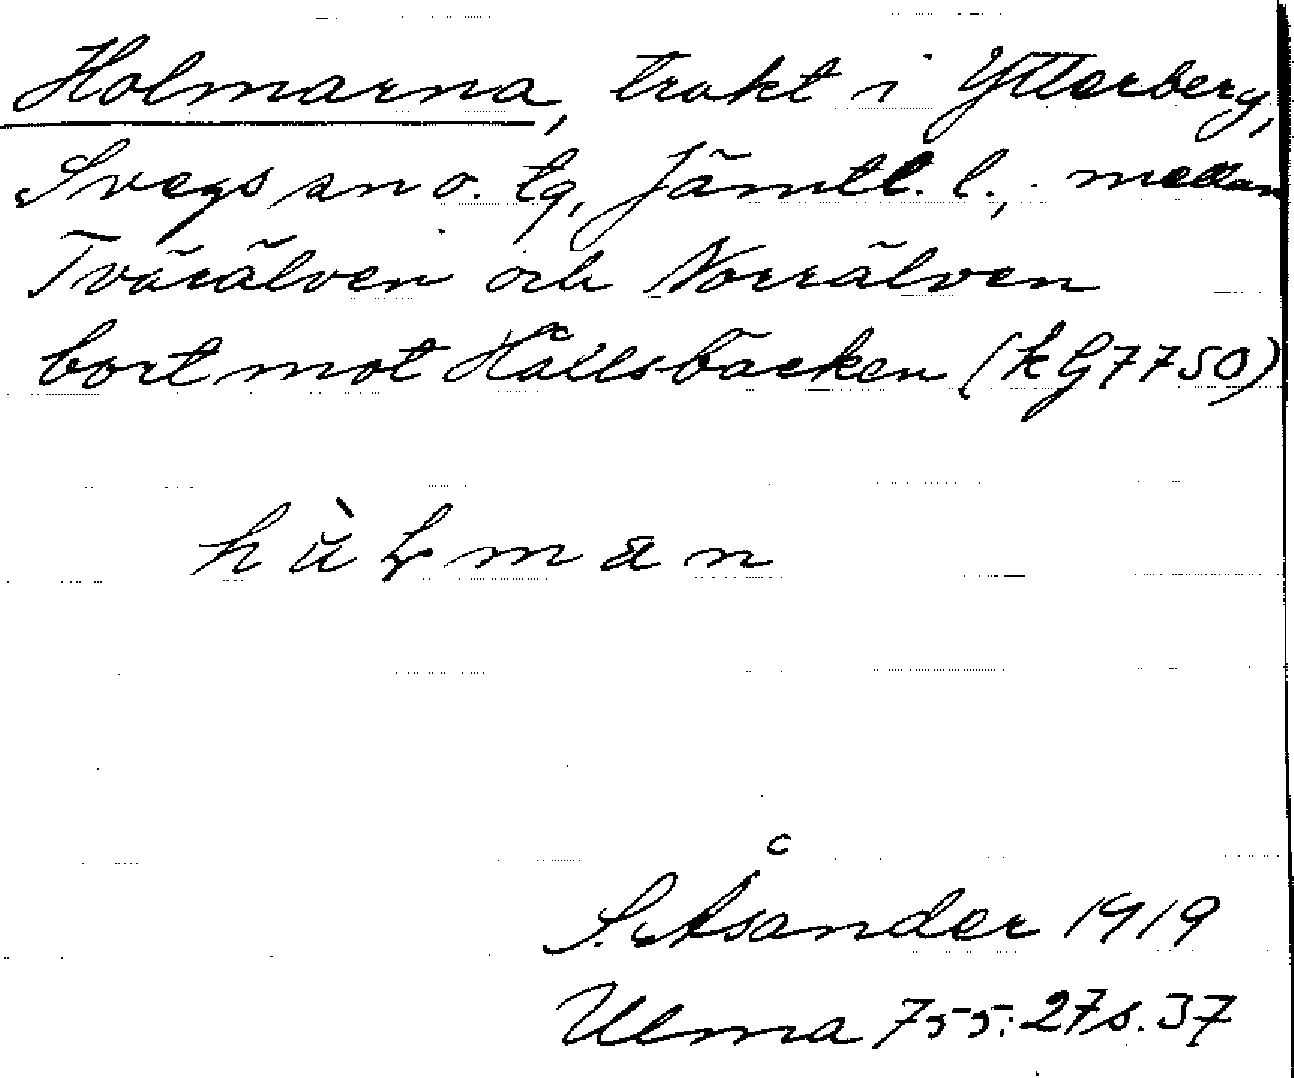 Holmarna, trakt i Ytterberg,
Svegs sn o. tg, Jämtl. l., mellan
Tvärälven och Norrälven
bort mot Hållsbäcken (kG7750)
S. Åsander 1919
Ulma 755:27 s. 37